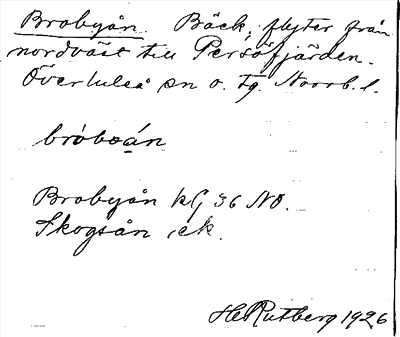 Brobyån. Bäck, flyter från
nordväst till Persöfjärden.
Överluleå sn o. tg. Norrb. l.
bròboán
Brobyån kG 36 NO.
Skogsån, ek.
HRutberg 1926